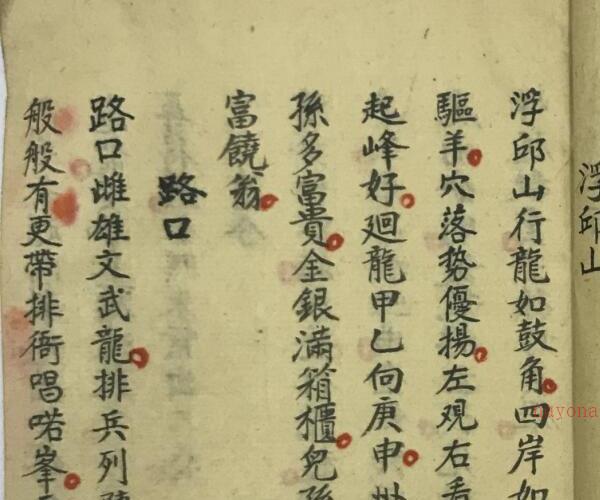 浮邱山
浮邱山行龍如鼓角四岸如
驅羊穴落勢優揚左观右看
起峰好廻龍甲乙向庚申
孫多富貴金銀滿箱櫃兒孫
富饒翁
路口
路口雌雄文武龍排兵列
般般有更帶排衙唱喏峯